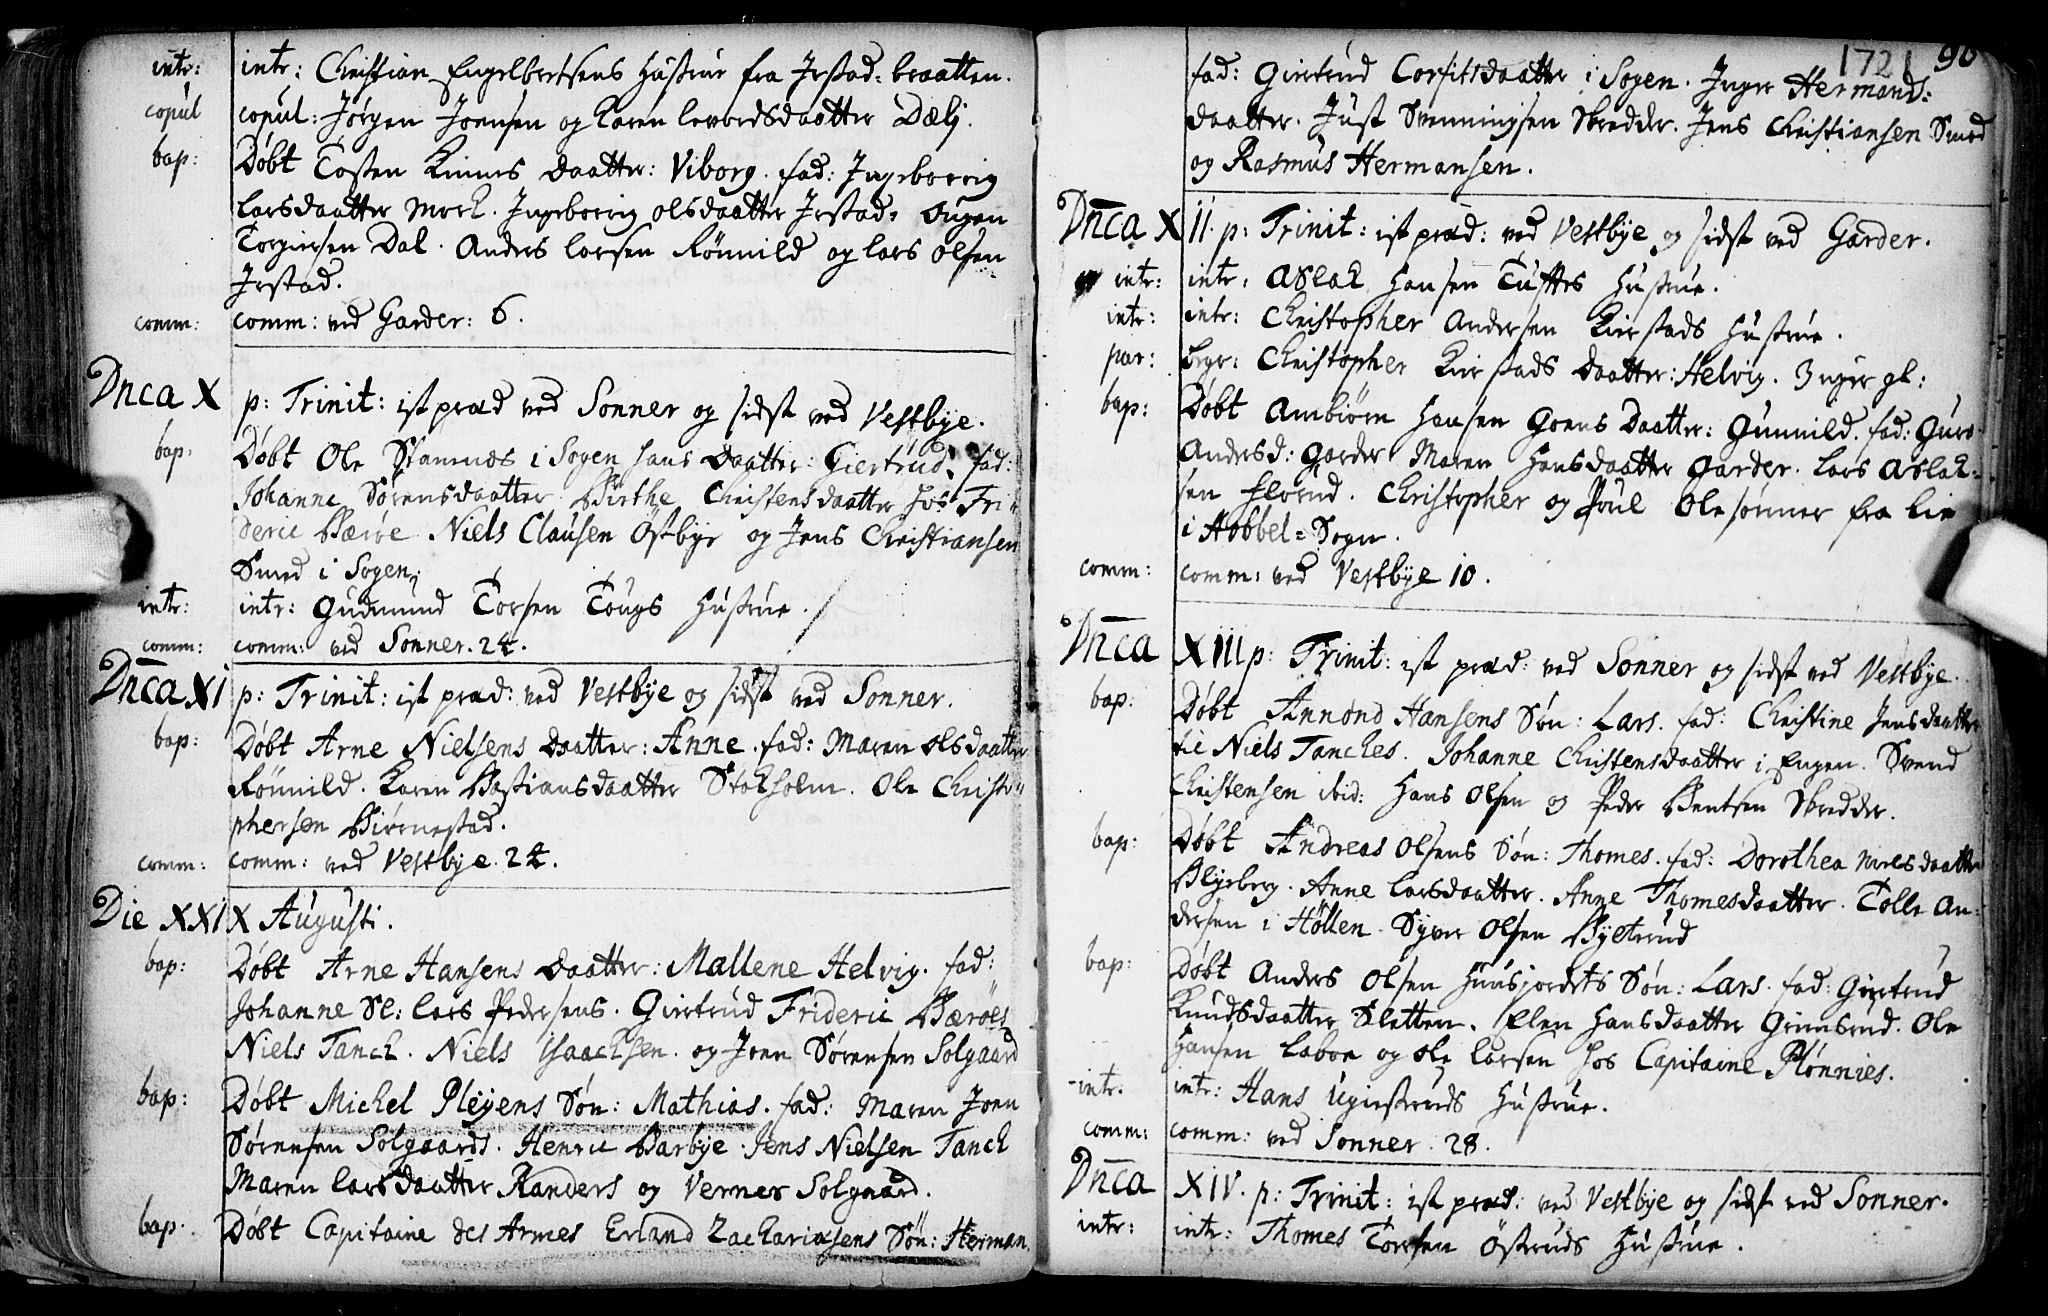 intr: intr: Christian Engelbertsens Hustrue fra Irstad-braatten.
copul copul: Jørgen Joensen og Karen Levordsdaatter Dæli.
bap: Døbt Tosten Kinnes Daatter: Viborg. fad: Ingeborrig
Larsdaatter Mork. Ingeborrig Olsdaatter Irstad.
Torgiersen Dal. Anders Larsen Rönnild og Lars Olsen
Irstad.
comm: comm: ved Garder: 6.
Dnca X p: Trinit: ist præd ved Sonner og sidst ved Vestbye.
bap: Døbt Ole Stamnes i Sogen hans Daatter: Giertrud. fad:
Johanne Sørensdaatter. Birthe Christensdaatter hos Fri-
deric Bærøe. Niels Clausen Østbye og Jens Christiansen
Smed i Sogen.
intr: intr: Gudmund Torsen Tougs Hustrue.
comm: comm: ved Sonner. 24.
Dnca XI p: Trinit: ist præd: ved Vestbye og sidst ved Sonner.
bap: Døbt Arne Nielsens Daatter: Anne. fad: Maren Olsdaatter
Rönnild. Karen Bastiansdaatter Stokholm. Ole Christo-
phersen Biørnestad.
comm: comm: ved Vestbye. 24.
Die XXIX Augusti.
bap: Døbt Arne Hansens Daatter: Mallene Helvig. fad:
Johanne Sl: Lars Pedersens. Giertrud Frideric Bærøes
Niels Tanck. Niels Isaachsen. og Joen Sørensen Solgaard
bap: Døbt Michel Pleyens Søn: Mathias. fad: Maren Joen
Sørensen Solgaards. Henric Barbye. Jens Nielsen Tanck
Maren Larsdaatter Randers og Verner Solgaard.
bap: Døbt Capitaine des Armes Erland Zachariasens Søn: Herman.
1721 90
fad: Giertrud Corfitsdaatter i Sogen. Inger Hermands-
daatter. Just Svenningsen Skredder. Jens Christiansen Smed
og Rasmus Hermansen.
Dnca XII. p: Trinit: ist præd: ved Vestbye og sidst ved Garder.
intr: intr: Aslak Hansen Tuftes Hustrue.
intr: intr: Christopher Andersen Kirstads Hustrue.
par: begr: Christopher Kirstads Daatter: Helvig. 3 uger gl:
bap: Døbt Ambiørn Hansen Goens Daatter: Gunnild. fad: Guro
Andersd: Garder Maren Hansdaatter Garder. Lars Aslak-
sen Florud. Christopher og Poul Olesønner fra Lie
i Hobbel-Sogn.
comm: comm: ved Vestbye 10.
Dnca XIII p: Trinit: ist præd: ved Sonner og sidst ved Vestbye.
bap: Døbt Annond Hansens Søn: Lars. fad: Christine Jensdaatter
til Niels Tanches. Johanne Christensdaatter i Engen. Svend
Christensen ibid: Hans Olsen og Peder Bentsen Skredder.
bap: Døbt Andreas Olsens Søn: Thomes. fad: Dorothea Nielsdaatter
Blyeberg. Anne Larsdaatter. Anne Thomesdaatter. Tolle An-
dersen i Höllen. Syver Olsen Byetrud
bap: Døbt Anders Olsen Huusjordets Søn: Lars. fad: Giertrud
Knudsdaatter Sletten. Elen Hansdaatter Grimsrud. Ole
Hansen Laboe og Ole Larsen hos Capitaine Plönnies.
intr. intr: Hans Ugiestruds Hustrue.
comm: comm: ved Sonner. 28.
Dnca XIV. p: Trinit: ist præd: ved Vestbye og sidst ved Sonner.
intr: intr: Thomes Torsen Östruds Hustrue.